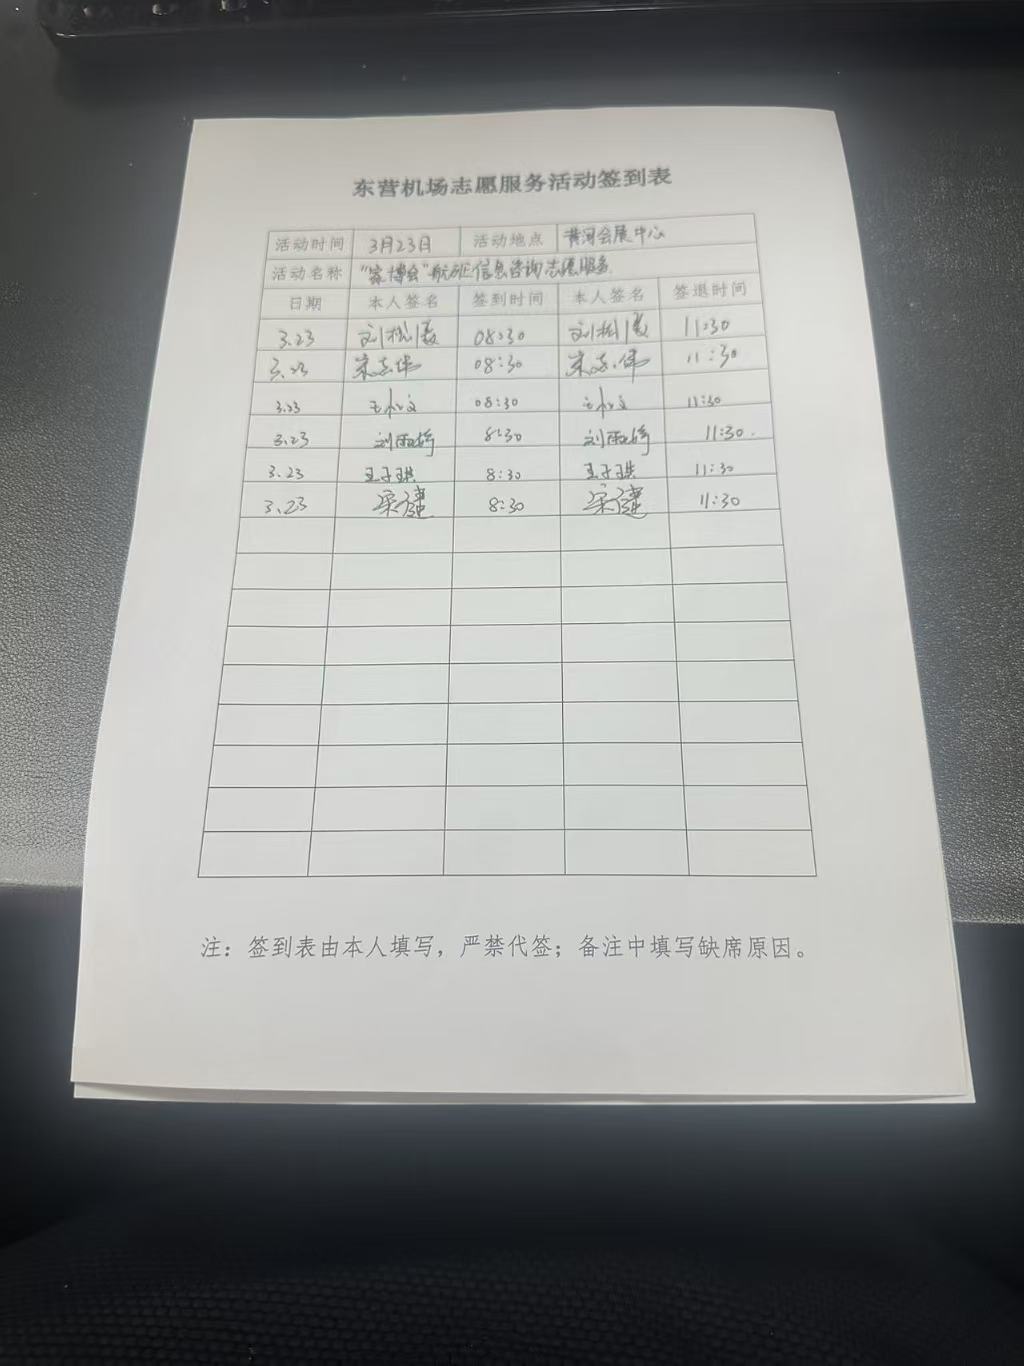 东营机场志愿服务活动签到表
活动时间 3月23日 活动地点 黄河会展中心
活动名称 "家博会"航班信息咨询志愿服务
日期 本人签名 签到时间 本人签名 签退时间
3.23 刘松 08:30 刘松 11:30
3.23 宋志伟 08:30 宋志伟 11:30
3.23 08:30 11:30
3.23 刘雨婷 8:30 刘雨婷 11:30.
3.23 王子琪 8:30 王子琪 11:30
3.23 梁健 8:30 梁健 11:30
注：签到表由本人填写，严禁代签；备注中填写缺席原因。